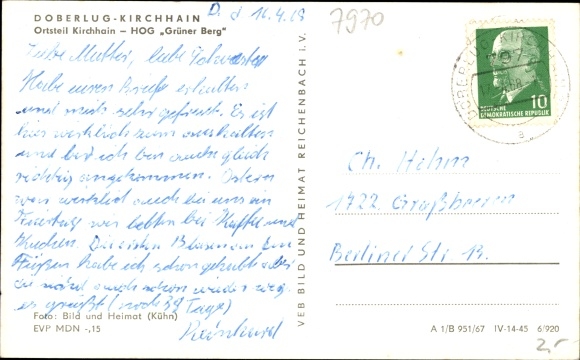 DOBERLUG-KIRCHHAIN
Ortsteil Kirchhain — HOG „Grüner Berg"
D. d 16.4.68
Liebe Mutter, liebe
Habe euren Brief erhalten
und mich sehr gefreut. Es ist
hier wirklich zum aushalten
und bei ich bin auch gleich
richtig angekommen. Ostern
war wirklich auch bei uns ein
Feiertag wir hatten bei Kaffee und
Kuchen. Die ersten Blasen an den
Füßen habe ich schon gehabt aber
die sind auch schon wieder weg.
es grüßt (noch Tage)
Reinhard
Foto: Bild und Heimat (Kühn)
EVP MDN -,15
VEB BILD UND HEIMAT REICHENBACH I. V.
7970
DOBERLUG-KIRCHHAIN
a
10
DEUTSCHE
DEMOKRATISCHE REPUBLIK
Ch. Hehm
1722 Großbeeren
Berliner Str. 13.
A 1/B 951/67 IV-14-45 6/920
2,-